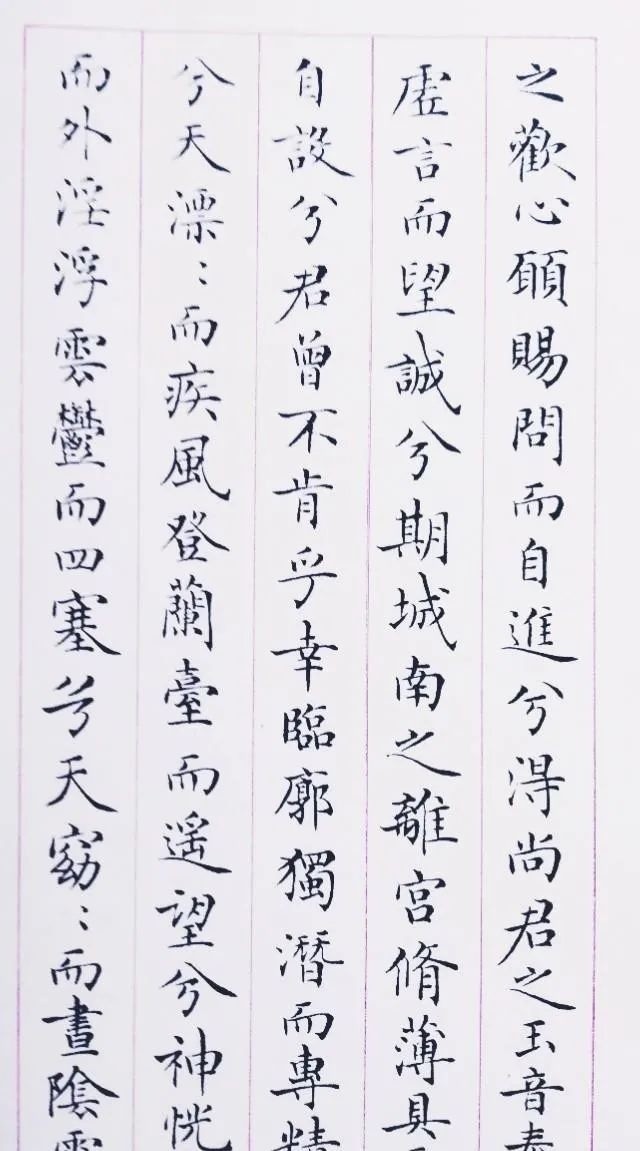 之歡心願賜問而自進兮得尚君之玉音奉
虛言而望誠兮期城南之離宮脩薄具
自設兮君曾不肯乎幸臨廓獨潛而專精
兮天漂：而疾風登蘭臺而遙望兮神怳
而外淫浮雲鬱而四塞兮天窈：而晝陰